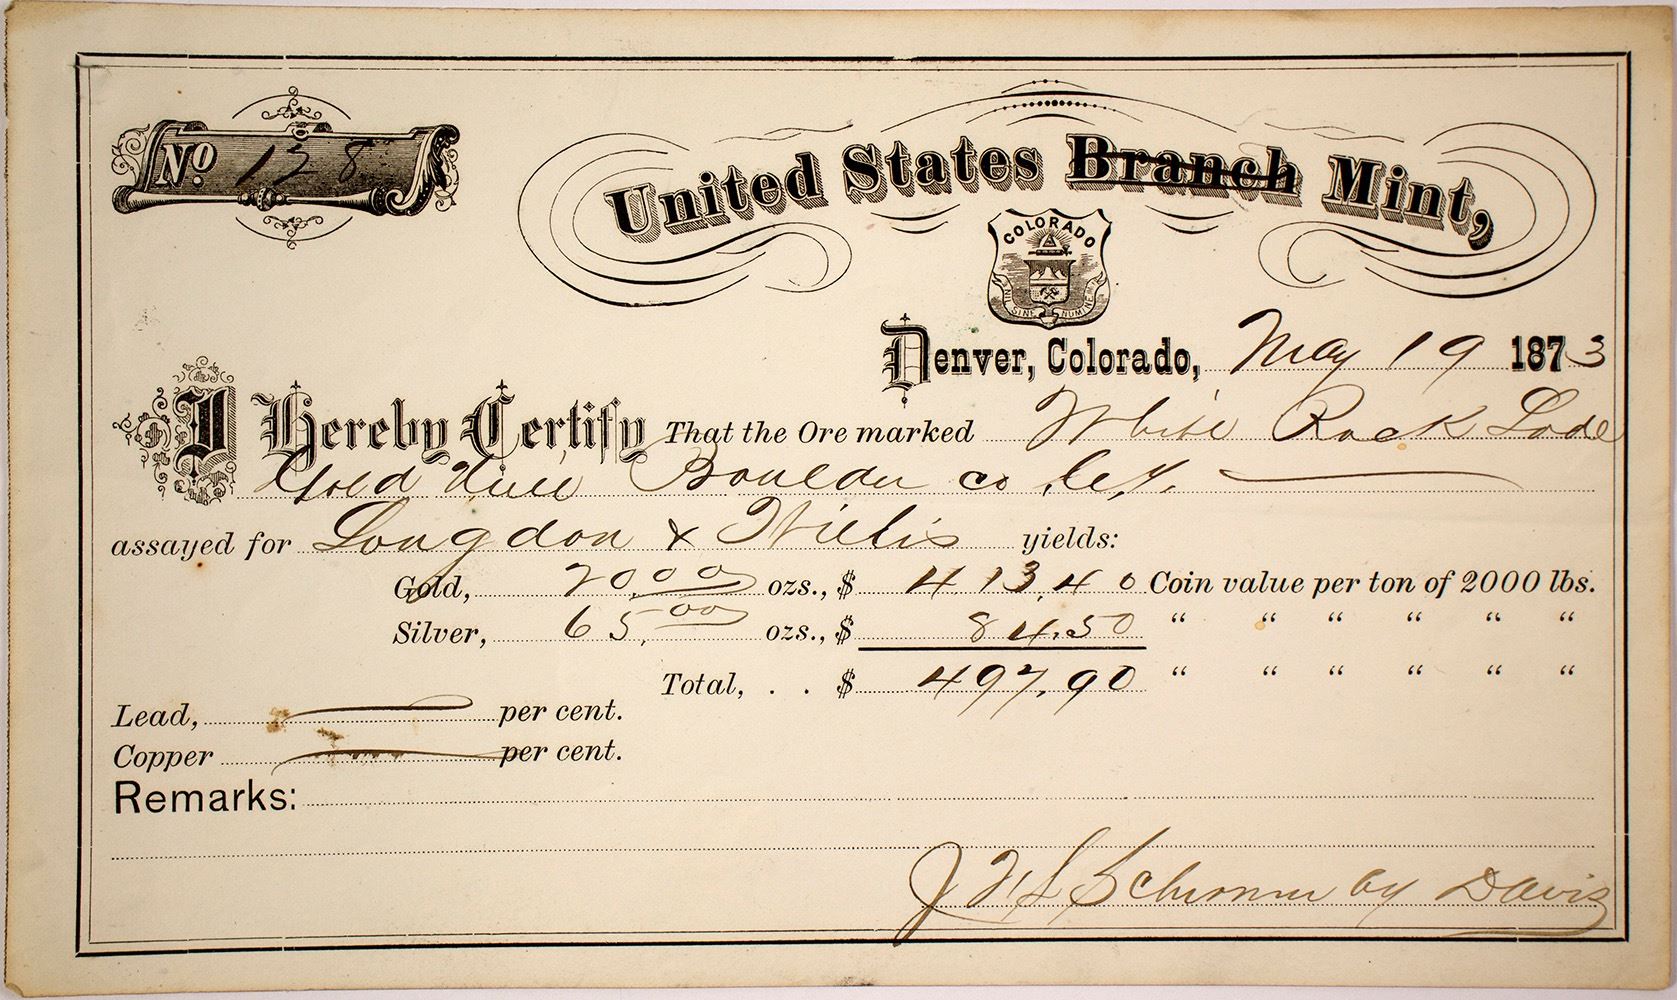 No. 128
United States Branch Mint,
COLORADO
NIL SINE NUMINE
Denver, Colorado, May 19 1873
I Hereby Certify That the Ore marked White Rock Lode
Gold Hill Boulder co C.T.
assayed for Longdon & Willis yields:
Gold, 20.00 ozs., $ 413.40 Coin value per ton of 2000 lbs.
Silver, 65.00 ozs., $ 84.50 " " " " " "
Total, . . $ 497.90 " " " " " "
Lead, per cent.
Copper per cent.
Remarks:
J. W. L. Schirmer by Davis